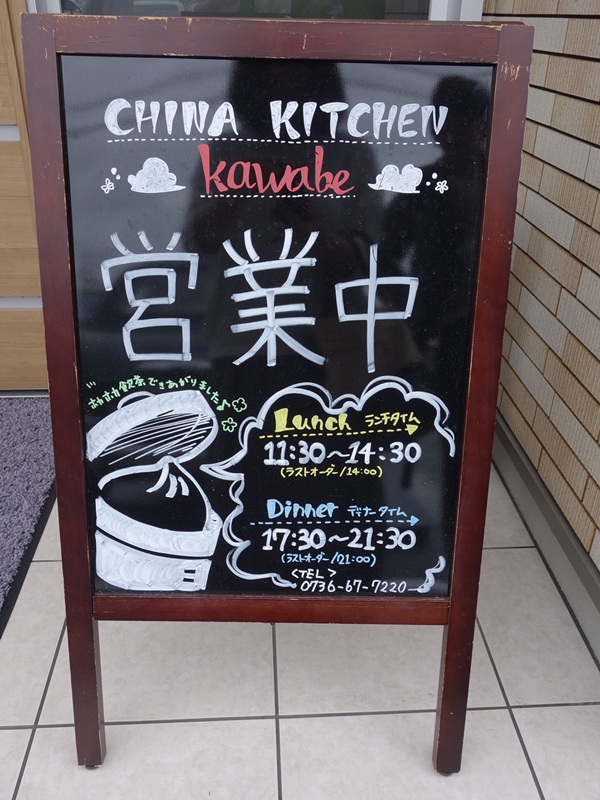 CHINA KITCHEN
kawabe
営業中
ホカホカ飲茶できあがりました♪
Lunch ランチタイム
11:30～14:30
(ラストオーダー/14:00)
Dinner ディナータイム
17:30～21:30
(ラストオーダー/21:00)
<TEL>
0736-67-7220